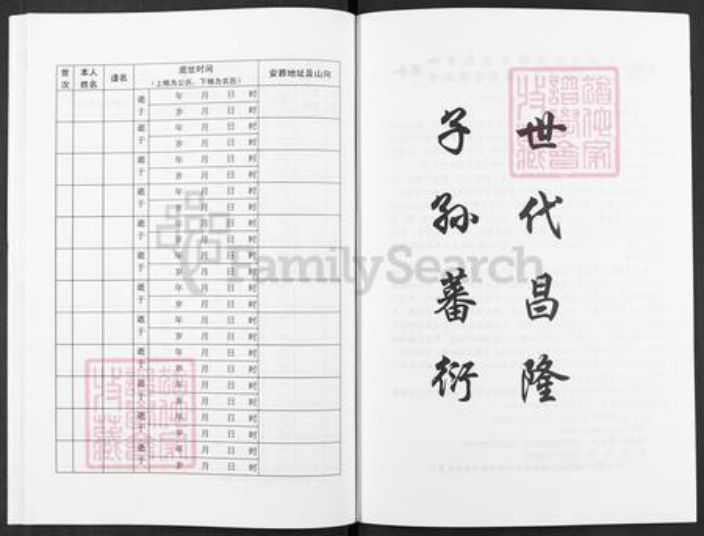 世次 本人姓名 谱名 逝世时间（上格为公历，下格为农历） 安葬地址及山向
逝于 年 月 日 时
岁 月 日 时
逝于 年 月 日 时
岁 月 日 时
逝于 年 月 日 时
岁 月 日 时
逝于 年 月 日 时
岁 月 日 时
逝于 年 月 日 时
岁 月 日 时
逝于 年 月 日 时
岁 月 日 时
逝于 年 月 日 时
岁 月 日 时
逝于 年 月 日 时
岁 月 日 时
逝于 年 月 日 时
岁 月 日 时
逝于 年 月 日 时
岁 月 日 时
逝于 年 月 日 时
岁 月 日 时
逝于 年 月 日 时
岁 月 日 时
世代昌隆
子孙蕃衍
FamilySearch